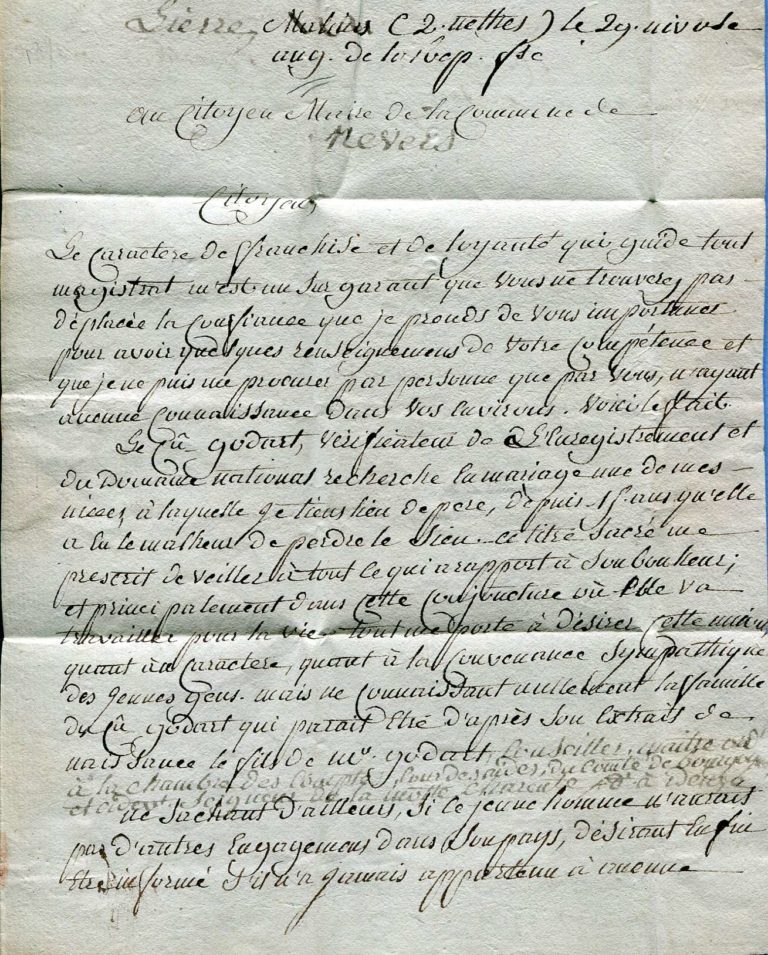 Lierre, Malines (2. nethes) le 29. nivose
an 9. de la rep. fse
au Citoyen Maire de la Commune de
Nevers
Citoyen,
Le Caractere de franchise et de loyauté qui guide tout
magistrat m'est un sur garant que vous ne trouverez pas
déplacée la Confiance que je prends de vous importuner
pour avoir quelques renseignemens de votre Compétence et
que je ne puis me procurer par personne que par vous, n'ayant
aucune Connaissance dans vos Environs. Voici le fait.
Le Cn. godart, Vérificateur de L'Enregistrement et
du Domaine national recherche En mariage une de mes
nieces, à laquelle je tiens lieu de pere, depuis 15. ans qu'elle
a Eu le malheur de perdre le Sien. ce titre Sacré me
prescrit de veiller à tout ce qui a rapport à Son bonheur;
et principalement dans Cette Conjoncture où Elle va
travailler pour la vie. tout me porte à désirer Cette union,
quant au Caractere, quant à la Convenance Sympathique
des Jeunes gens. mais ne Connaissant nullement la famille
du Cn. godart qui parait Etre d'après Son Extrait de
naissance le fils de mr. godart, Conseiller, maitre
à la chambre des Comptes, Cour des aides, du Comté de bourgogne
et Seigneur de la motte à
ne Sachant d'ailleurs, Si le jeune homme n'aurait
pas d'autres Engagemens dans Son pays, désirant Enfin
Etre informé S'il n'a Jamais appartenu à aucune